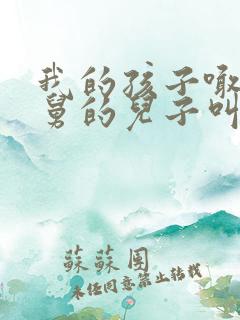 我的孩子噉
舅的兒子叫
蘇蘇團
未经同意禁止转载